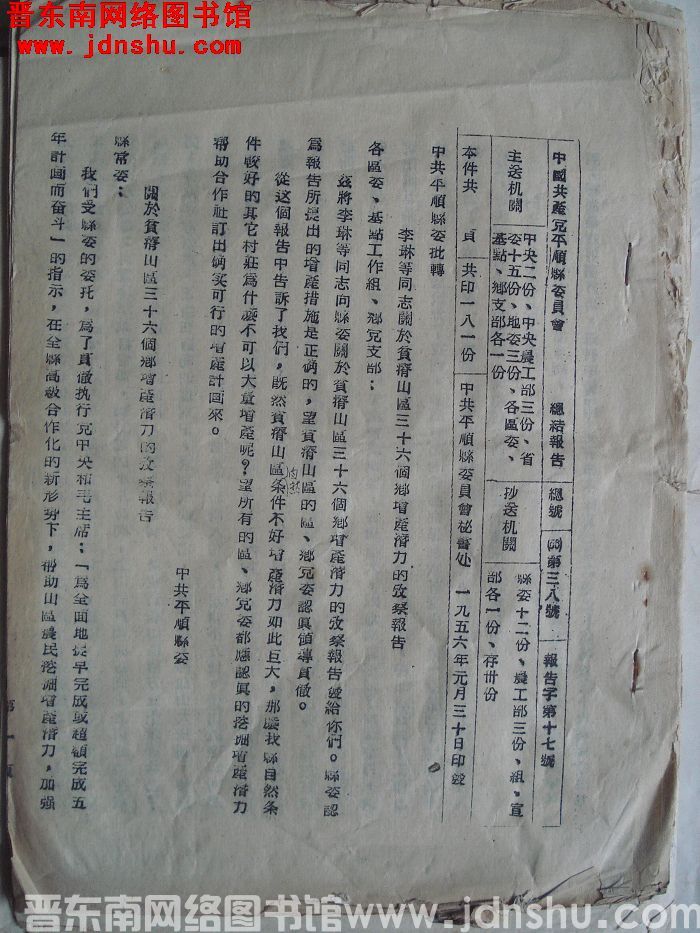 晋东南网络图书馆
www.jdnshu.com
中國共產党平順縣委員會 總結報告 總號 第三八號 報告字第十七號
主送机關 中央二份、中央農工部三份、省委十五份、地委三份、各區委、基點、鄉支部各一份 抄送机關 縣委十二份、農工部三份、組、宣部各一份、存卅份
本件共 頁 共印一八一份 中共平順縣委員會秘書处 一九五六年元月三十日印發
中共平順縣委批轉
李琳等同志關於貧瘠山區三十六個鄉增產潛力的攷察報告
各區委、基點工作組、鄉党支部：
茲將李琳等同志向縣委關於貧瘠山區三十六個鄉增產潛力的攷察報告發給你們。縣委認
為報告所提出的增產措施是正確的，望貧瘠山區的區、鄉党委認眞領導貫徹。
從这個報告中告訴了我們，既然貧瘠山區条件不好增產潛力如此巨大，那麽我縣自然条
件較好的其它村莊為什麽不可以大量增產呢？望所有的區、鄉党委都應認眞的挖掘增產潛力
帮助合作社訂出确实可行的增產計画來。
中共平順縣委
關於貧瘠山區三十六個鄉增產潛力的攷察報告
縣常委：
我們受縣委的委托，為了貫徹执行党中央和毛主席：「為全面地提早完成或超額完成五
年計画而奋斗」的指示，在全縣高級合作化的新形势下，帮助山區農民挖掘增產潛力，加强
第一頁
晋东南网络图书馆www.jdnshu.com